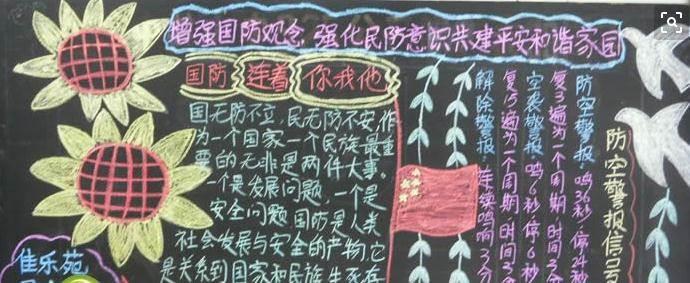 增强国防观念 强化民防意识共建平安和谐家园
国防 连着 你我他
国无防不立,民无防不安,作
为一个国家一个民族最重
要的无非是两件大事。
一个是发展问题,一个是
安全问题,国防是人类
社会发展与安全的产物,它
是关系到国家和民族生死存
佳乐苑
防空警报信号
防空警报:鸣36秒,停24秒
复3遍为一个周期,时间3分
空袭警报:鸣6秒,停6秒
复15遍为一个周期,时间3分
解除警报:连续鸣响3分